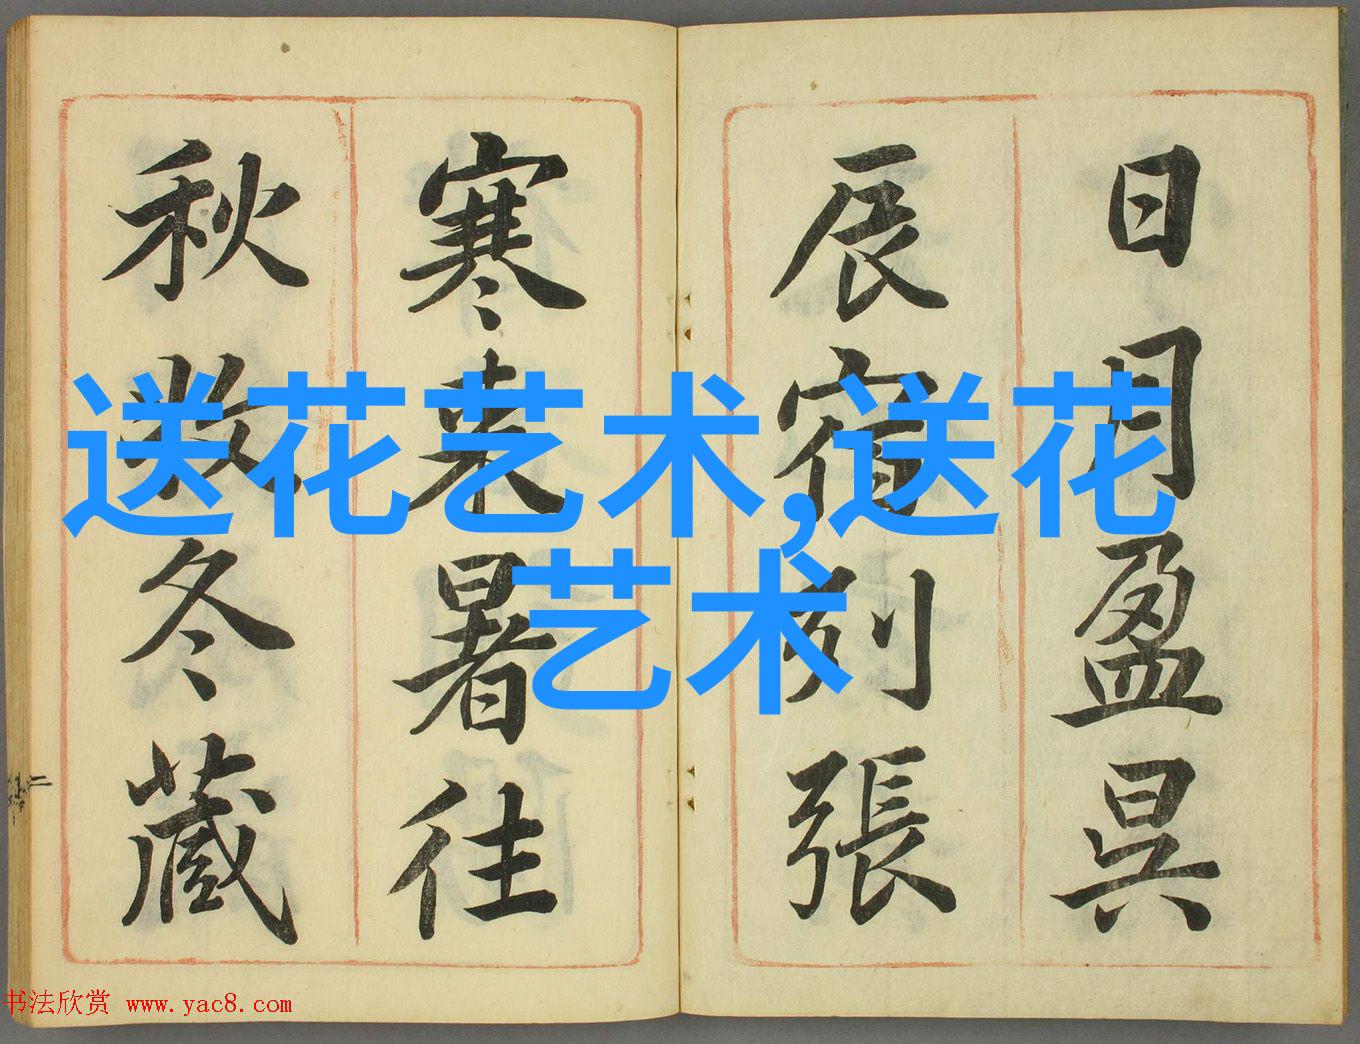 日月盈昃
辰宿列張
寒来暑往
秋收冬藏
送花艺术,送花
艺术
书法欣赏 www.yac8.com